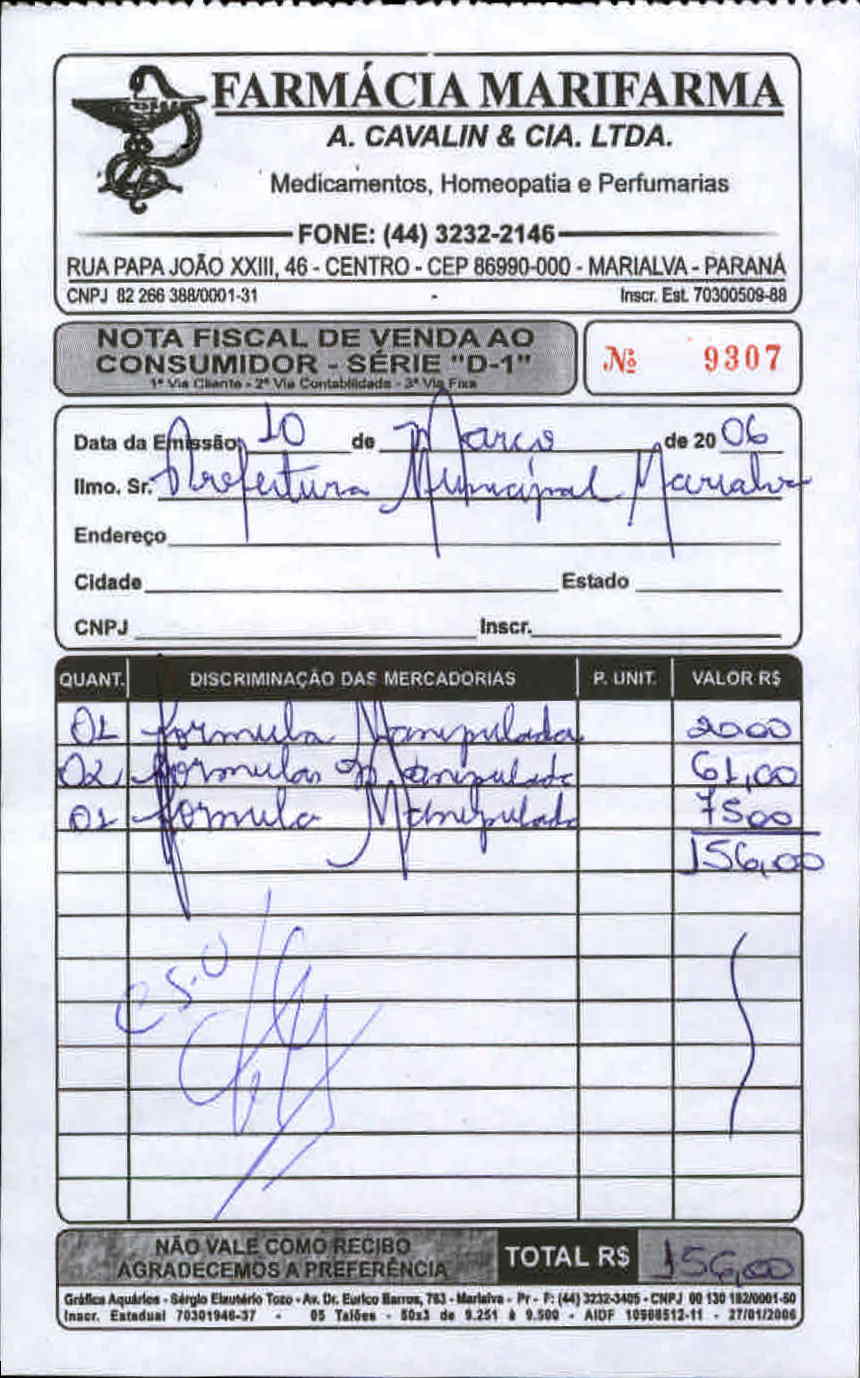 FARMÁCIA MARIFARMA
A. CAVALIN & CIA. LTDA.
Medicamentos, Homeopatia e Perfumarias
FONE: (44) 3232-2146
RUA PAPA JOÃO XXIII, 46 - CENTRO - CEP 86990-000 - MARIALVA - PARANÁ
CNPJ 82 266 388/0001-31 - Inscr. Est. 70300509-88
NOTA FISCAL DE VENDA AO
CONSUMIDOR - SÉRIE "D-1"
Nº 9307
1ª Via Cliente - 2ª Via Contabilidade - 3ª Via Fixa
Data da Emissão 10 de Março de 20 06
Ilmo. Sr. Prefeitura Municipal Marialva
Endereço
Cidade Estado
CNPJ Inscr.
QUANT. DISCRIMINAÇÃO DAS MERCADORIAS P. UNIT. VALOR R$
01 formula Manipulada 2000
02 formulas Manipulada 61,00
01 formula Manipulada 7500
156,00
C S.U
NÃO VALE COMO RECIBO
AGRADECEMOS A PREFERÊNCIA
TOTAL R$ 156,00
Gráfica Aquários - Sérgio Eleutério Tozo - Av. Dr. Eurico Barros, 783 - Marialva - Pr - F: (44) 3232-3405 - CNPJ 00 130 182/0001-50
Inscr. Estadual 70301946-37 - 05 Talões - 50x3 de 9.251 à 9.500 - AIDF 10508512-11 - 27/01/2006